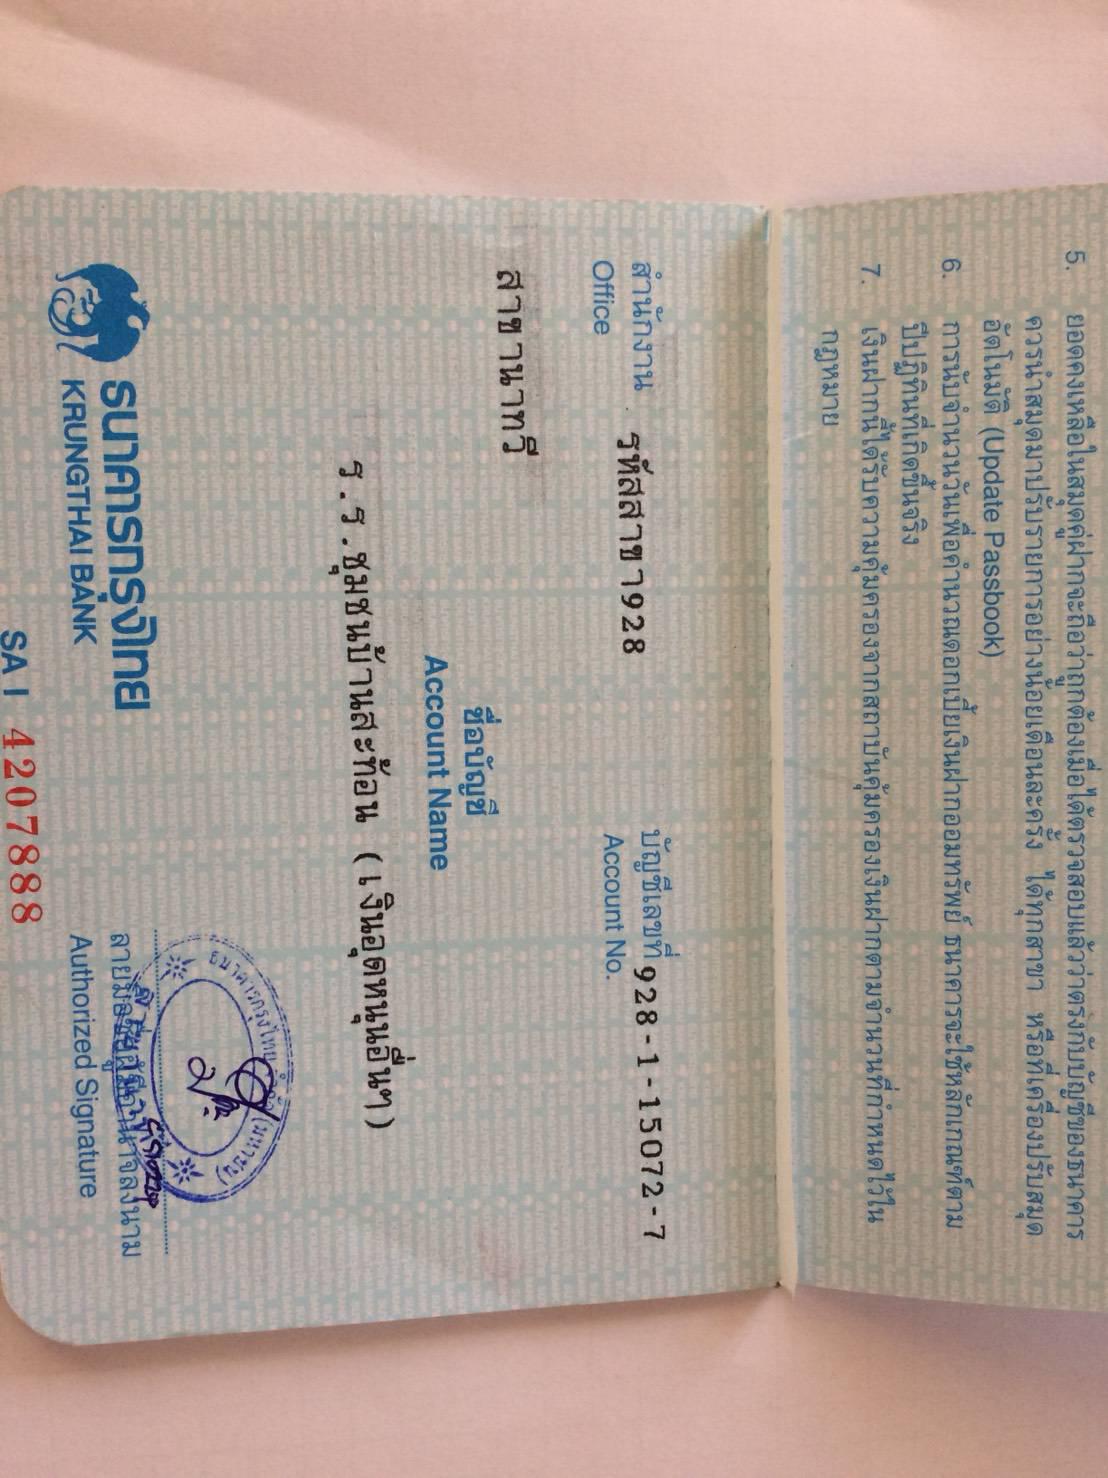 5. ยอดคงเหลือในสมุดคู่ฝากจะถือว่าถูกต้องเมื่อได้ตรวจสอบแล้วว่าตรงกับบัญชีของธนาคาร
ควรนำสมุดมาปรับรายการอย่างน้อยเดือนละครั้ง ได้ทุกสาขา หรือที่เครื่องปรับสมุด
อัตโนมัติ (Update Passbook)
6. การนับจำนวนวันเพื่อคำนวณดอกเบี้ยเงินฝากออมทรัพย์ ธนาคารจะใช้หลักเกณฑ์ตาม
ปีปฏิทินที่เกิดขึ้นจริง
7. เงินฝากนี้ได้รับความคุ้มครองจากสถาบันคุ้มครองเงินฝากตามจำนวนที่กำหนดไว้ใน
กฎหมาย
สำนักงาน รหัสสาขา928 บัญชีเลขที่ 928-1-15072-7
Office Account No.
สาขานาทวี
ชื่อบัญชี
Account Name
ร.ร.ชุมชนบ้านสะท้อน (เงินอุดหนุนอื่นๆ)
ธนาคารกรุงไทย (มหาชน)
ธนาคารกรุงไทย
KRUNGTHAI BANK
ลายมือชื่อผู้มีอำนาจลงนาม
Authorized Signature
SA I 4207888